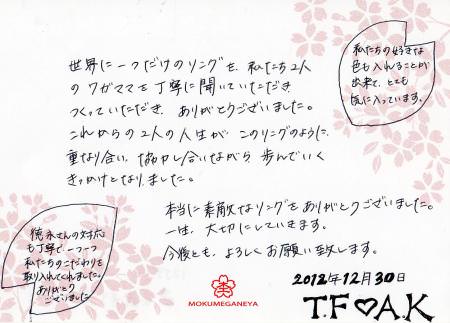 世界に一つだけのリングを、私たち2人
のワガママを丁寧に聞いていただき
つくっていただき、ありがとうございました。
これからの2人の人生が、このリングのように、
重なり合い、協力し合いながら歩んでいく
きっかけとなりました。
本当に素敵なリングをありがとうございました。
一生、大切にしていきます。
今後とも、よろしくお願い致します。
私たちの好きな
色も入れることが
出来て、とても
気に入っています。
徳永さんの対応
も丁寧で、一つ一つ
私たちのこだわりを
取り入れてくれました。
ありがとう
ございました
2012年12月30日
T.F♡A.K
MOKUMEGANEYA